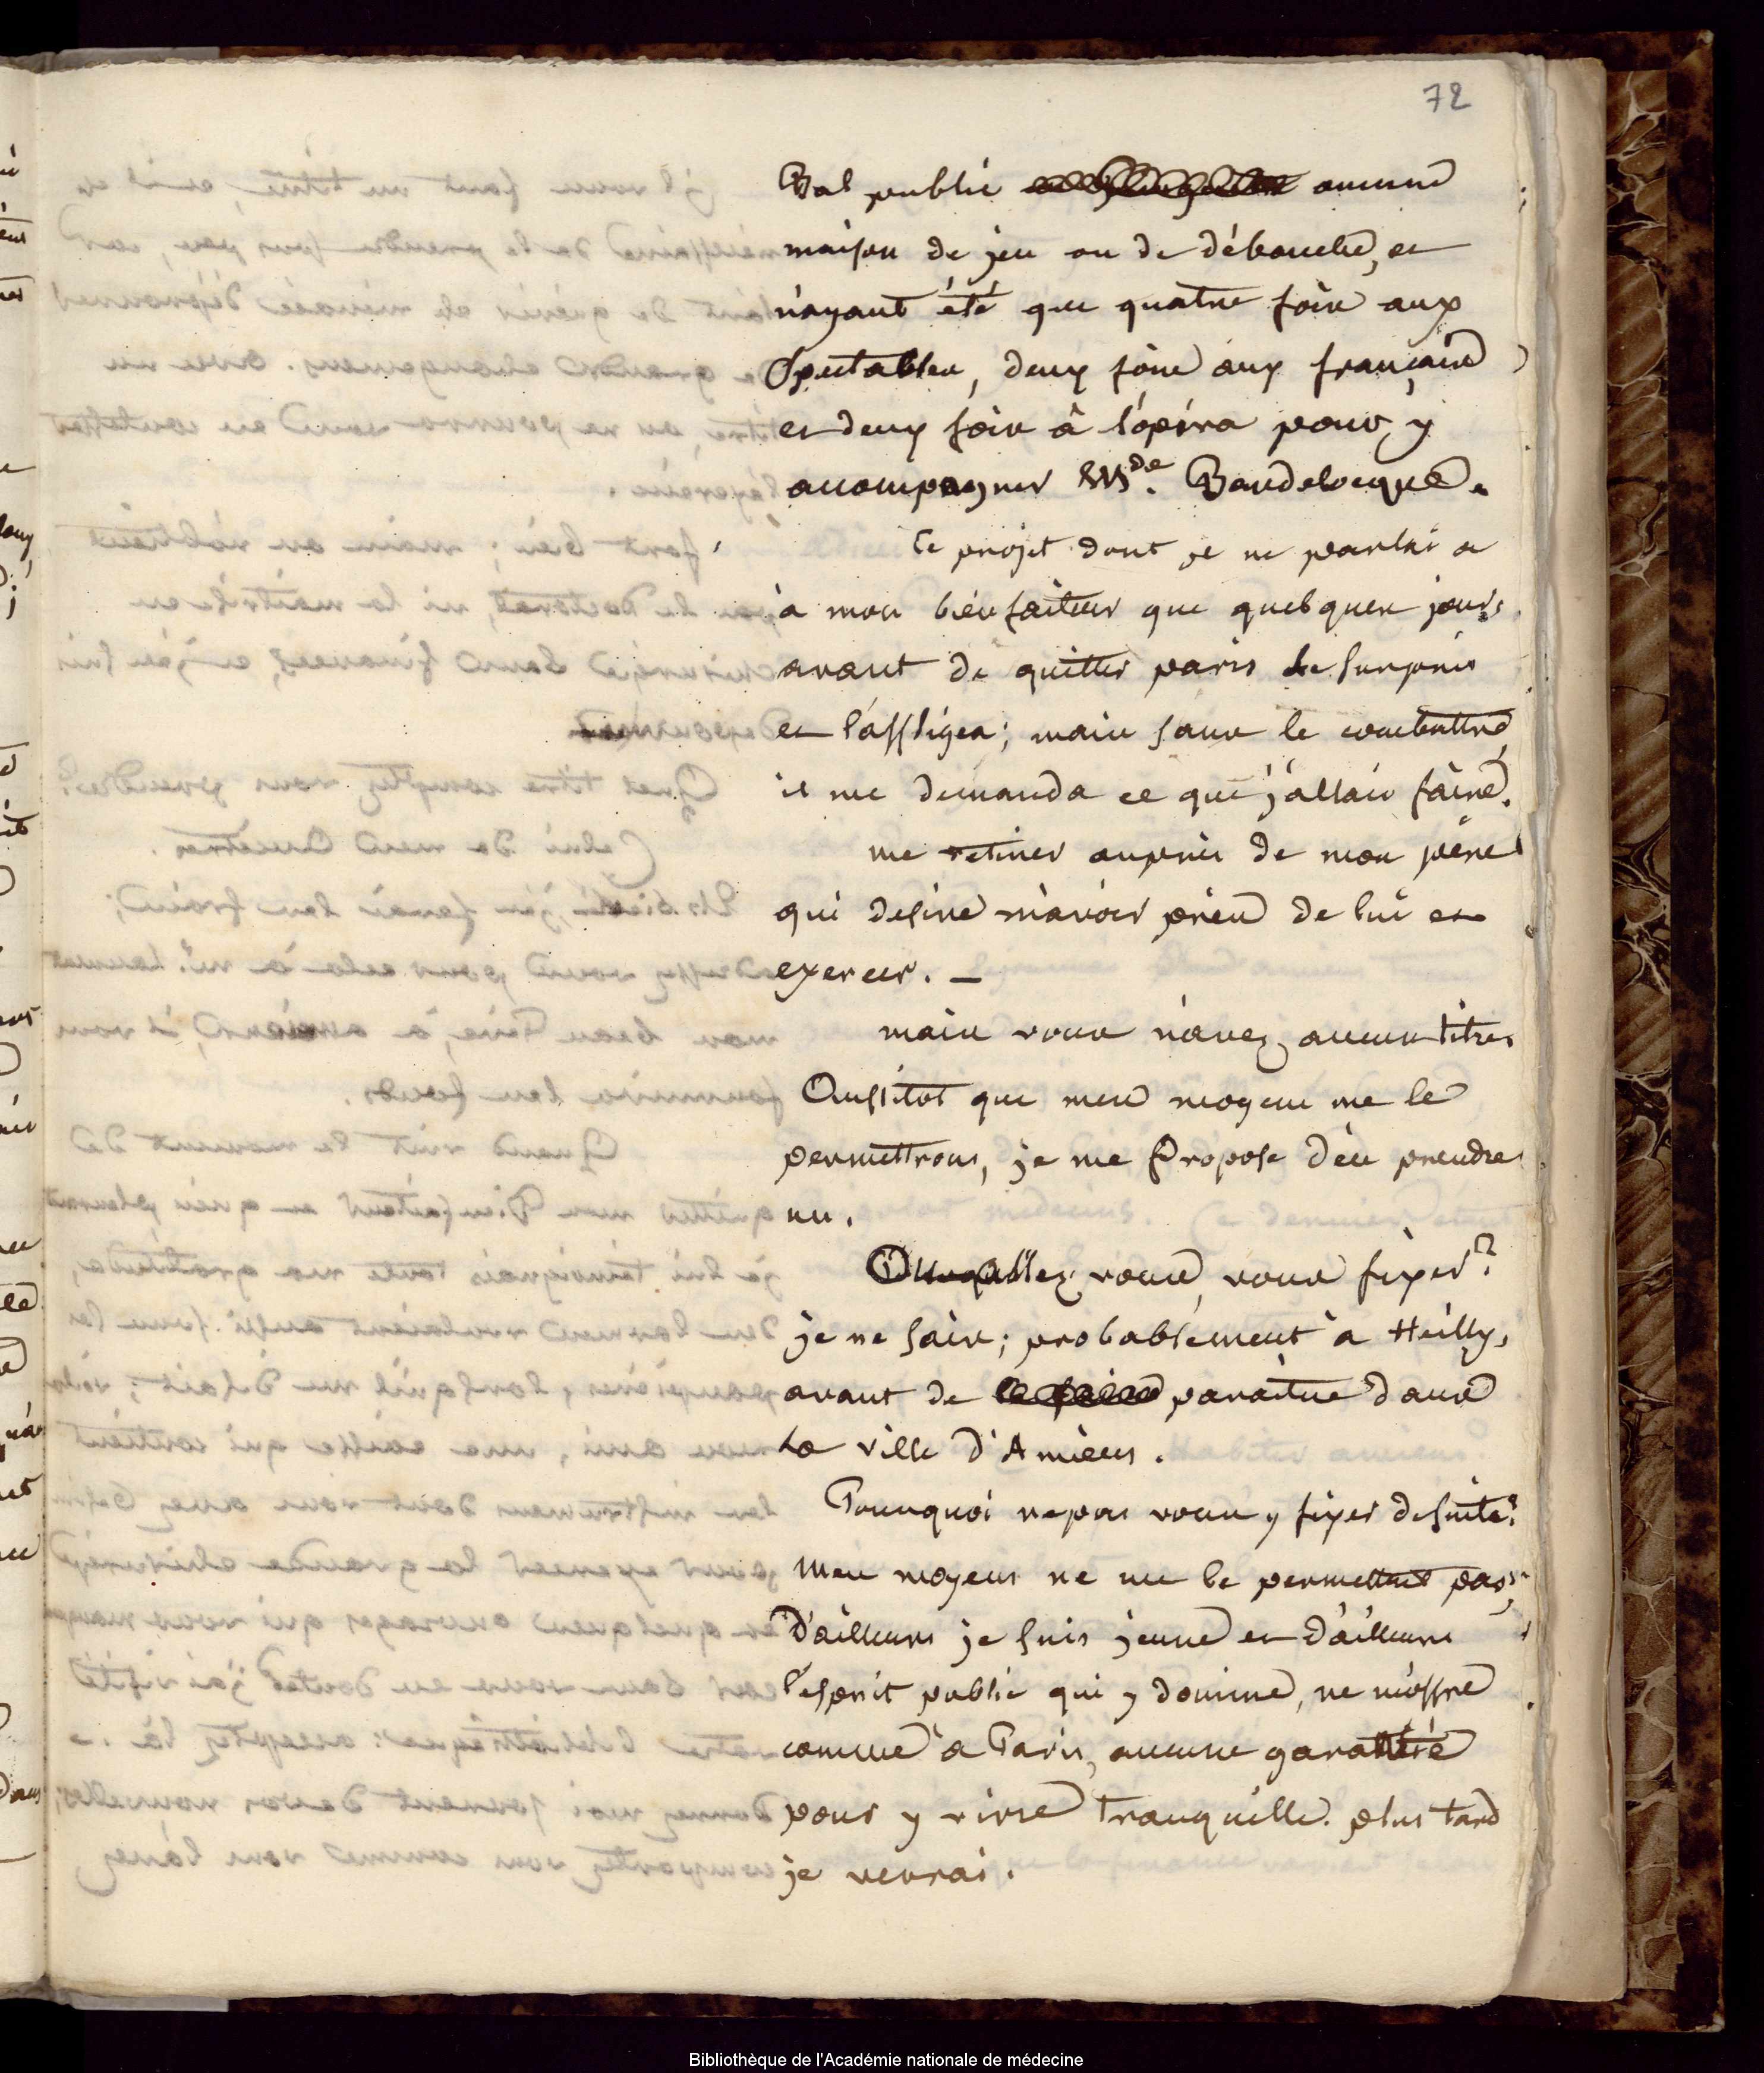 72
Bal public aucune
maison de jeu ou de débauche, et
n'ayant été que quatre fois aux
Spectables, deux fois aux français
et deux fois à l'opéra pour y
accompagner Mde. Baudelocque.
Ce projet dont je ne parlai a
à mon bienfaiteur que quelques jours
avant de quitter paris le surprit
et l'affligea; mais sans le combattre,
il me demanda ce que j'allais faire.
me retirer auprès de mon père
qui desire m'avoir près de lui et
exercer. –
mais vous n'avez aucun titre.
Aussitot que mes moyens me le
permettrons, je me Propose d'en prendre
un.
Ou allez vous, vous fixer?
je ne sais; probablement à Heilly,
avant de paraitre dans
la ville d'Amiens.
Pourquoi ne pas vous y fixer de suite?
Mes moyens ne me le permettent pas;
D'ailleurs je suis jeune et d'ailleurs
l'esprit public qui y domine, ne m'offre
comme à Paris, aucune garantie
pour y vivre tranquille. plus tard
je verrai.
Bibliothèque de l'Académie nationale de médecine